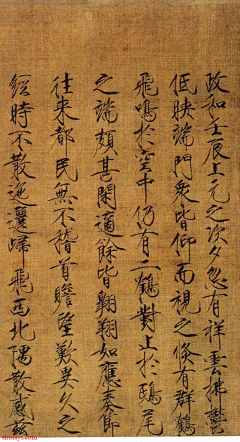 政和壬辰上元之次夕忽有祥雲拂鬱
低映端門衆皆仰而視之倏有群鶴
飛鳴於空中仍有二鶴對止於鴟尾
之端頗甚閑適餘皆翱翔如應奏節
往來都民無不稽首瞻望歎異久之
經時不散迤邐歸飛西北隅散感茲